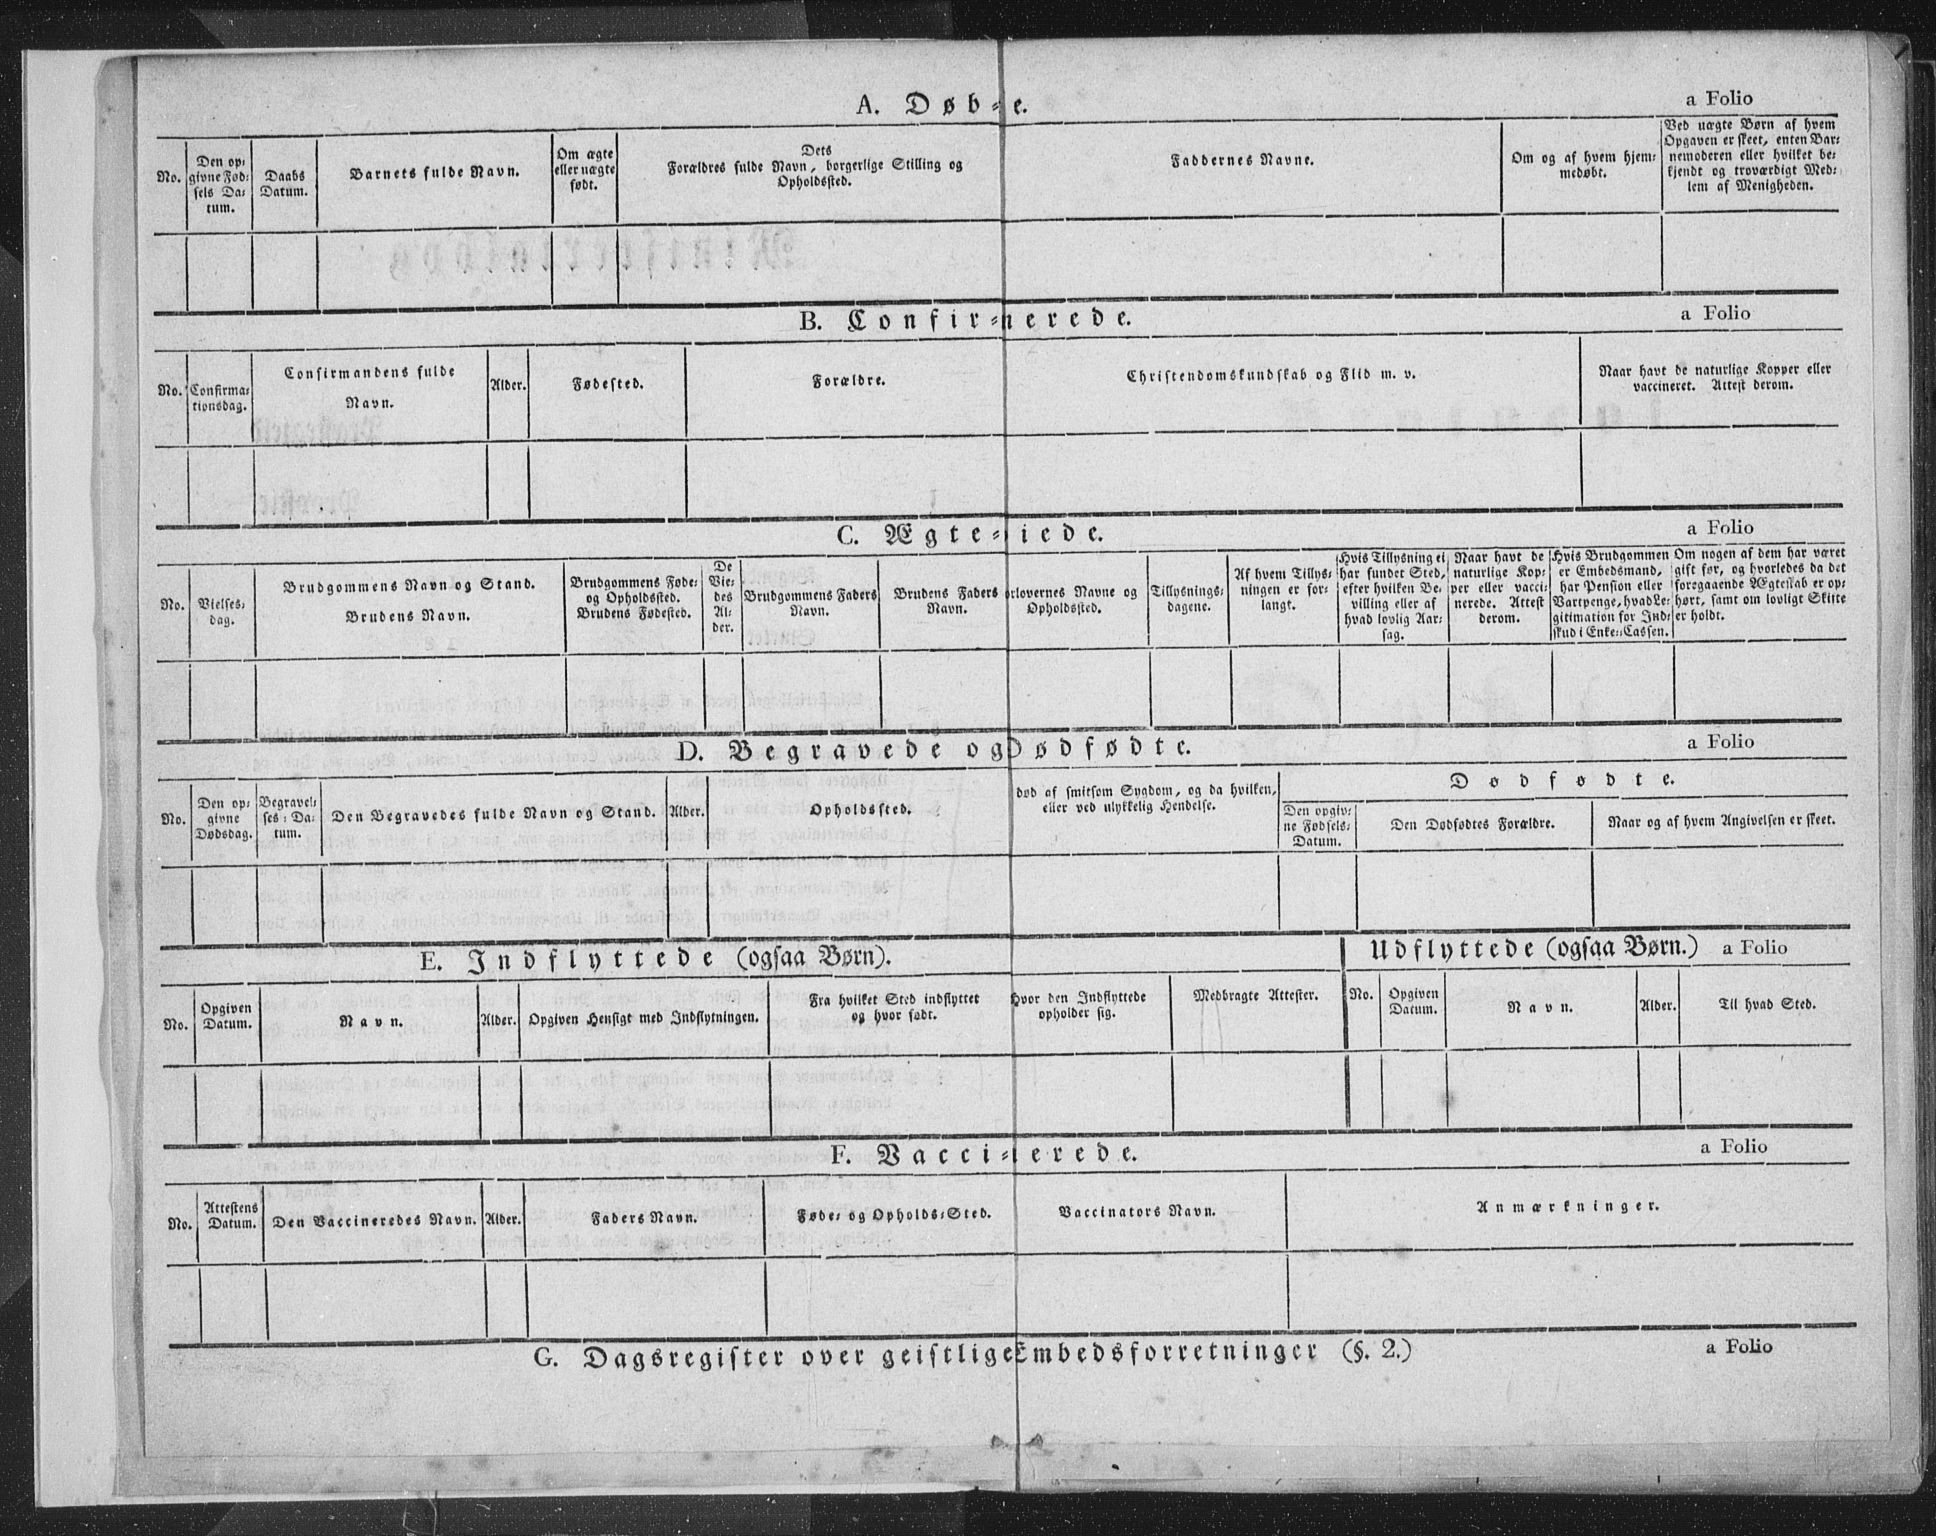 A. Døb-e.
a Folio
No.
Den op-
givne Fød-
sels Da-
tum.
Daabs
Datum.
Barnets fulde Navn.
Om ægte
eller uægte
født.
Dets
Forældres fulde Navn, borgerlige Stilling og
Opholdssted.
Faddernes Navne.
Om og af hvem hjem-
medøbt.
Ved uægte Børn af hvem
Opgaven er skeet, enten Bar-
nemoderen eller hvilket be-
kjendt og troværdigt Med-
lem af Menigheden.
B. Confir-nerede.
a Folio
No.
Confirma-
tionsdag.
Confirmandens fulde
Navn.
Alder.
Fødested.
Forældre.
Christendomskundskab og Flid m. v.
Naar havt de naturlige Kopper eller
vaccineret. Attest derom.
C. Ægte-iede.
a Folio
No.
Vielses-
dag.
Brudgommens Navn og Stand.
Brudens Navn.
Brudgommens Føde-
og Opholdssted.
Brudens Fødested.
De
Vie-
des
Al-
der.
Brudgommens Faders
Navn.
Brudens Faders
Navn.
orlovernes Navne og
Opholdssted.
Tillysnings-
dagene.
Af hvem Tillys-
ningen er for-
langt.
Hvis Tillysning ei
har fundet Sted,
efter hvilken Be-
villing eller af
hvad lovlig Aar-
sag.
Naar havt de
naturlige Kop-
per eller vacci-
nerede. Attest
derom.
Hvis Brudgommen
er Embedsmand,
har Pension eller
Vartpenge, hvad Le-
gitimation for Ind-
skud i Enke-Cassen.
Om nogen af dem har været
gift før, og hvorledes da det
foregaaende Ægteskab er op-
hørt, samt om lovligt Skifte
er holdt.
D. Begravede og Dødfødte.
a Folio
No.
Den op-
givne
Dødsdag.
Begravel-
ses-Da-
tum.
Den Begravedes fulde Navn og Stand.
Alder.
Opholdssted.
død af smitsom Sygdom, og da hvilken,
eller ved ulykkelig Hendelse.
Dødfødte.
Den opgiv-
ne Fødsels-
Datum.
Den Dødfødtes Forældre.
Naar og af hvem Angivelsen er skeet.
E. Indflyttede (ogsaa Børn).
Udflyttede (ogsaa Børn.)
a Folio
No.
Opgiven
Datum.
Navn.
Alder.
Opgiven Hensigt med Indflytningen.
Fra hvilket Sted indflyttet
og hvor født.
Hvor den Indflyttede
opholder sig.
Medbragte Attester.
No.
Opgiven
Datum.
Navn.
Alder.
Til hvad Sted.
F. Vacci-nerede.
a Folio
No.
Attestens
Datum.
Den Vaccineredes Navn.
Alder.
Faders Navn.
Føde- og Opholds-Sted.
Vaccinators Navn.
Anmærkninger.
G. Dagsregister over geistlige Embedsforretninger (§. 2.)
a Folio